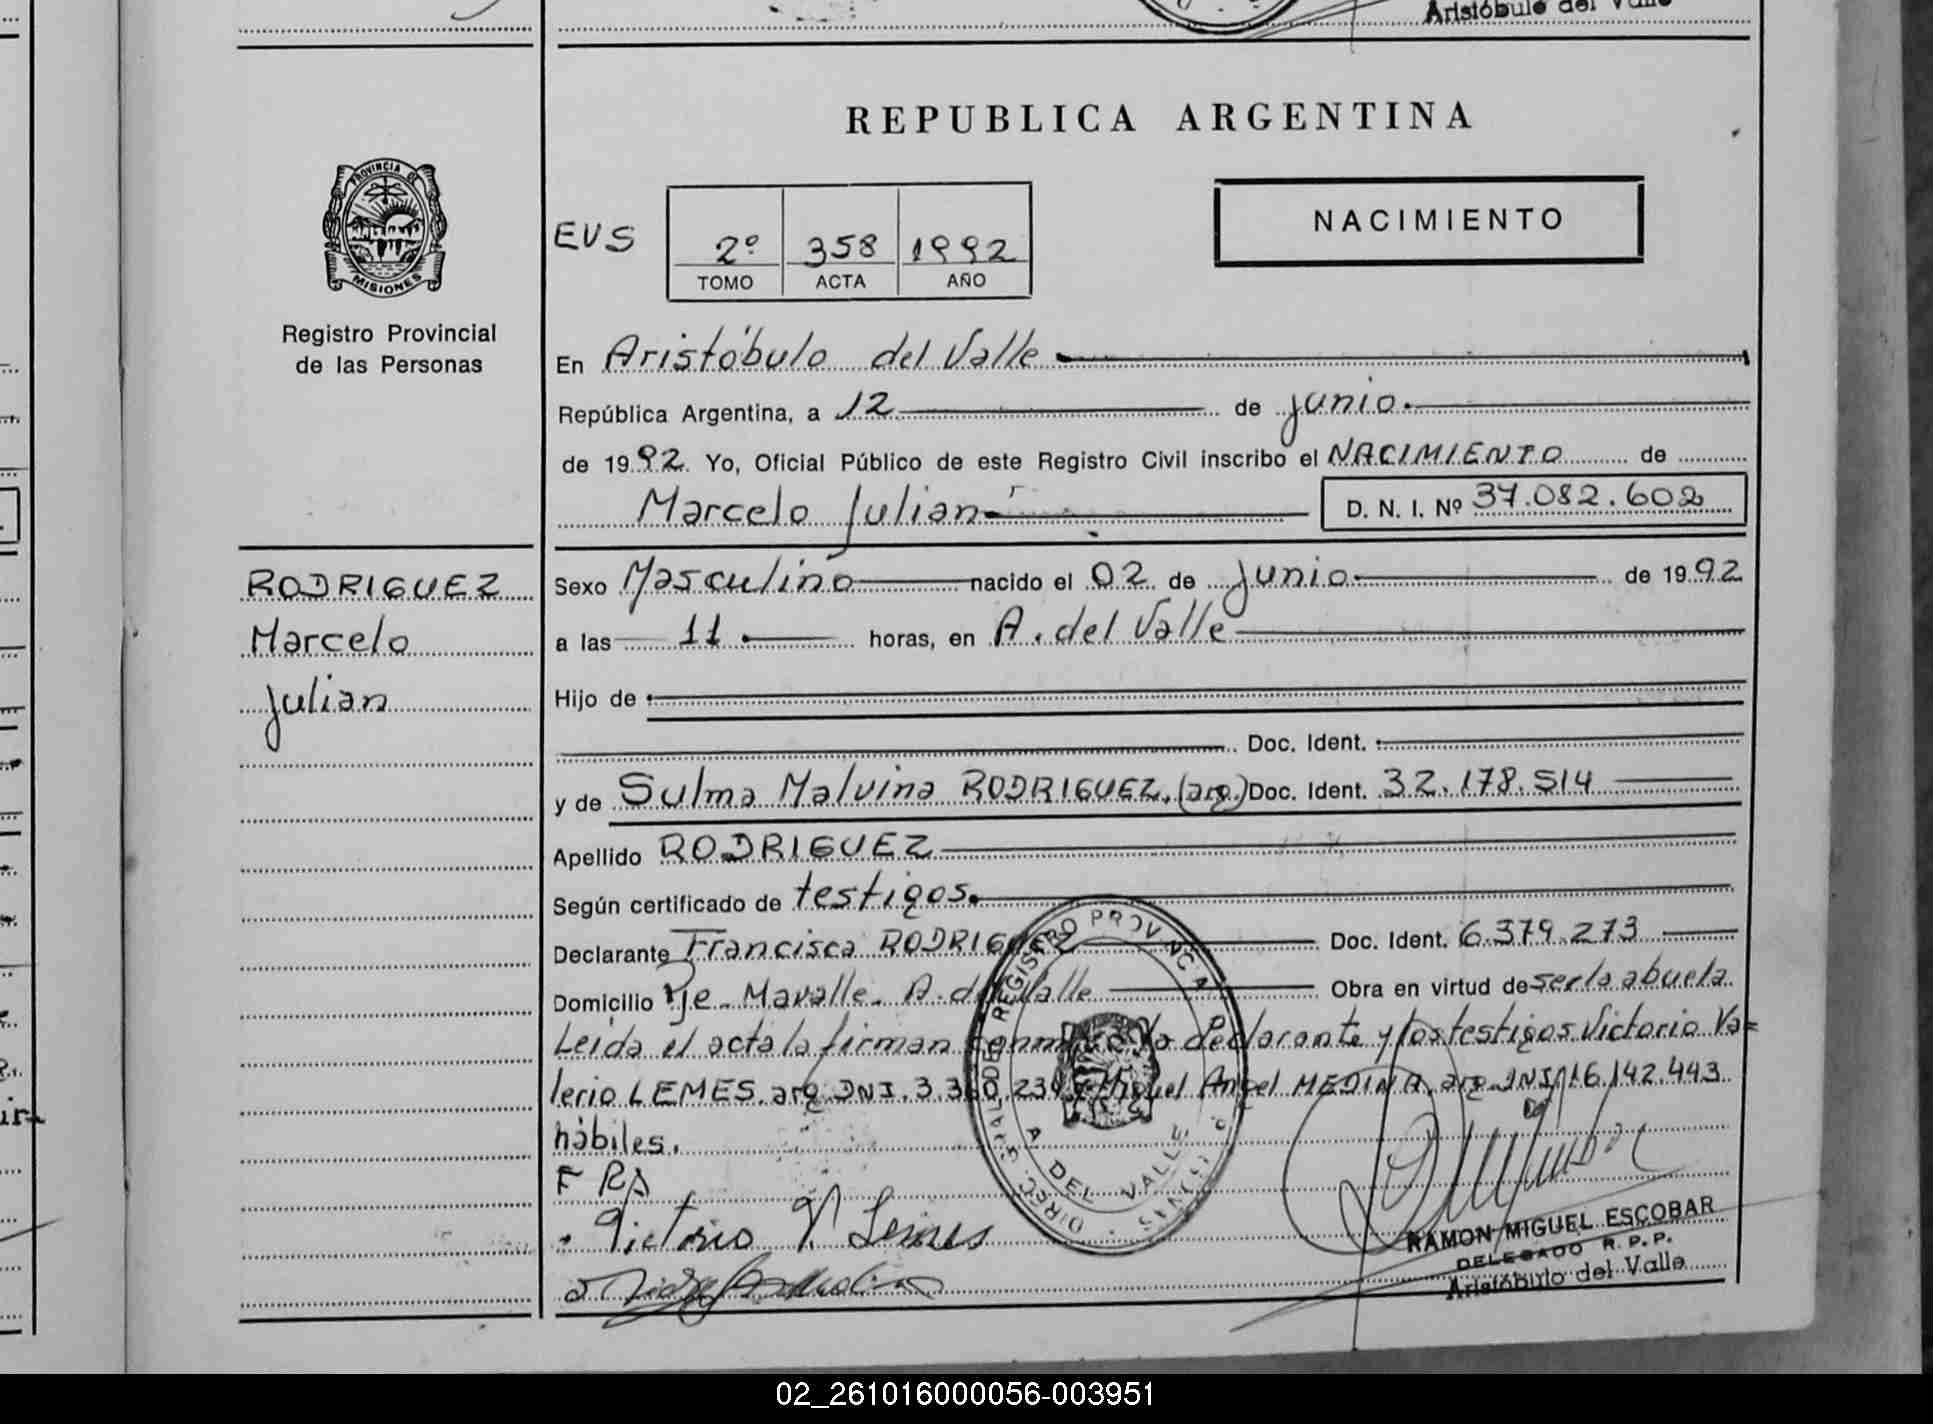 Aristóbulo del Valle
REPUBLICA ARGENTINA
PROVINCIA DE
MISIONES
Registro Provincial
de las Personas
EUS
2º 358 1992
TOMO ACTA AÑO
NACIMIENTO
En Aristóbulo del Valle
República Argentina, a 12 de junio
de 1992. Yo, Oficial Público de este Registro Civil inscribo el NACIMIENTO de
Marcelo Julian D. N. I. Nº 37.082.602
RODRIGUEZ
Marcelo
Julian
Sexo Masculino nacido el 02 de junio de 1992
a las 11 horas, en A. del Valle
Hijo de
Doc. Ident.
y de Sulma Malvina RODRIGUEZ. (arg.) Doc. Ident. 32.178.514
Apellido RODRIGUEZ
Según certificado de testigos.
Declarante Francisca RODRIGUEZ Doc. Ident. 6.379.273
Domicilio Pje. Mavalle. A. del Valle Obra en virtud de ser la abuela.
Leída el acta la firman conmigo la declarante y los testigos Victorio Va=
lerio LEMES. arg. DNI. 3.360.23 Miguel Angel MEDINA, arg. DNI 16.142.443
hábiles.
F RA
Victorio V. Lemes
DIREC. REGISTRO PROVINCIAL DE
A DEL VALLE
RAMON MIGUEL ESCOBAR
DELEGADO R. P. P.
Aristóbulo del Valle
02_261016000056-003951